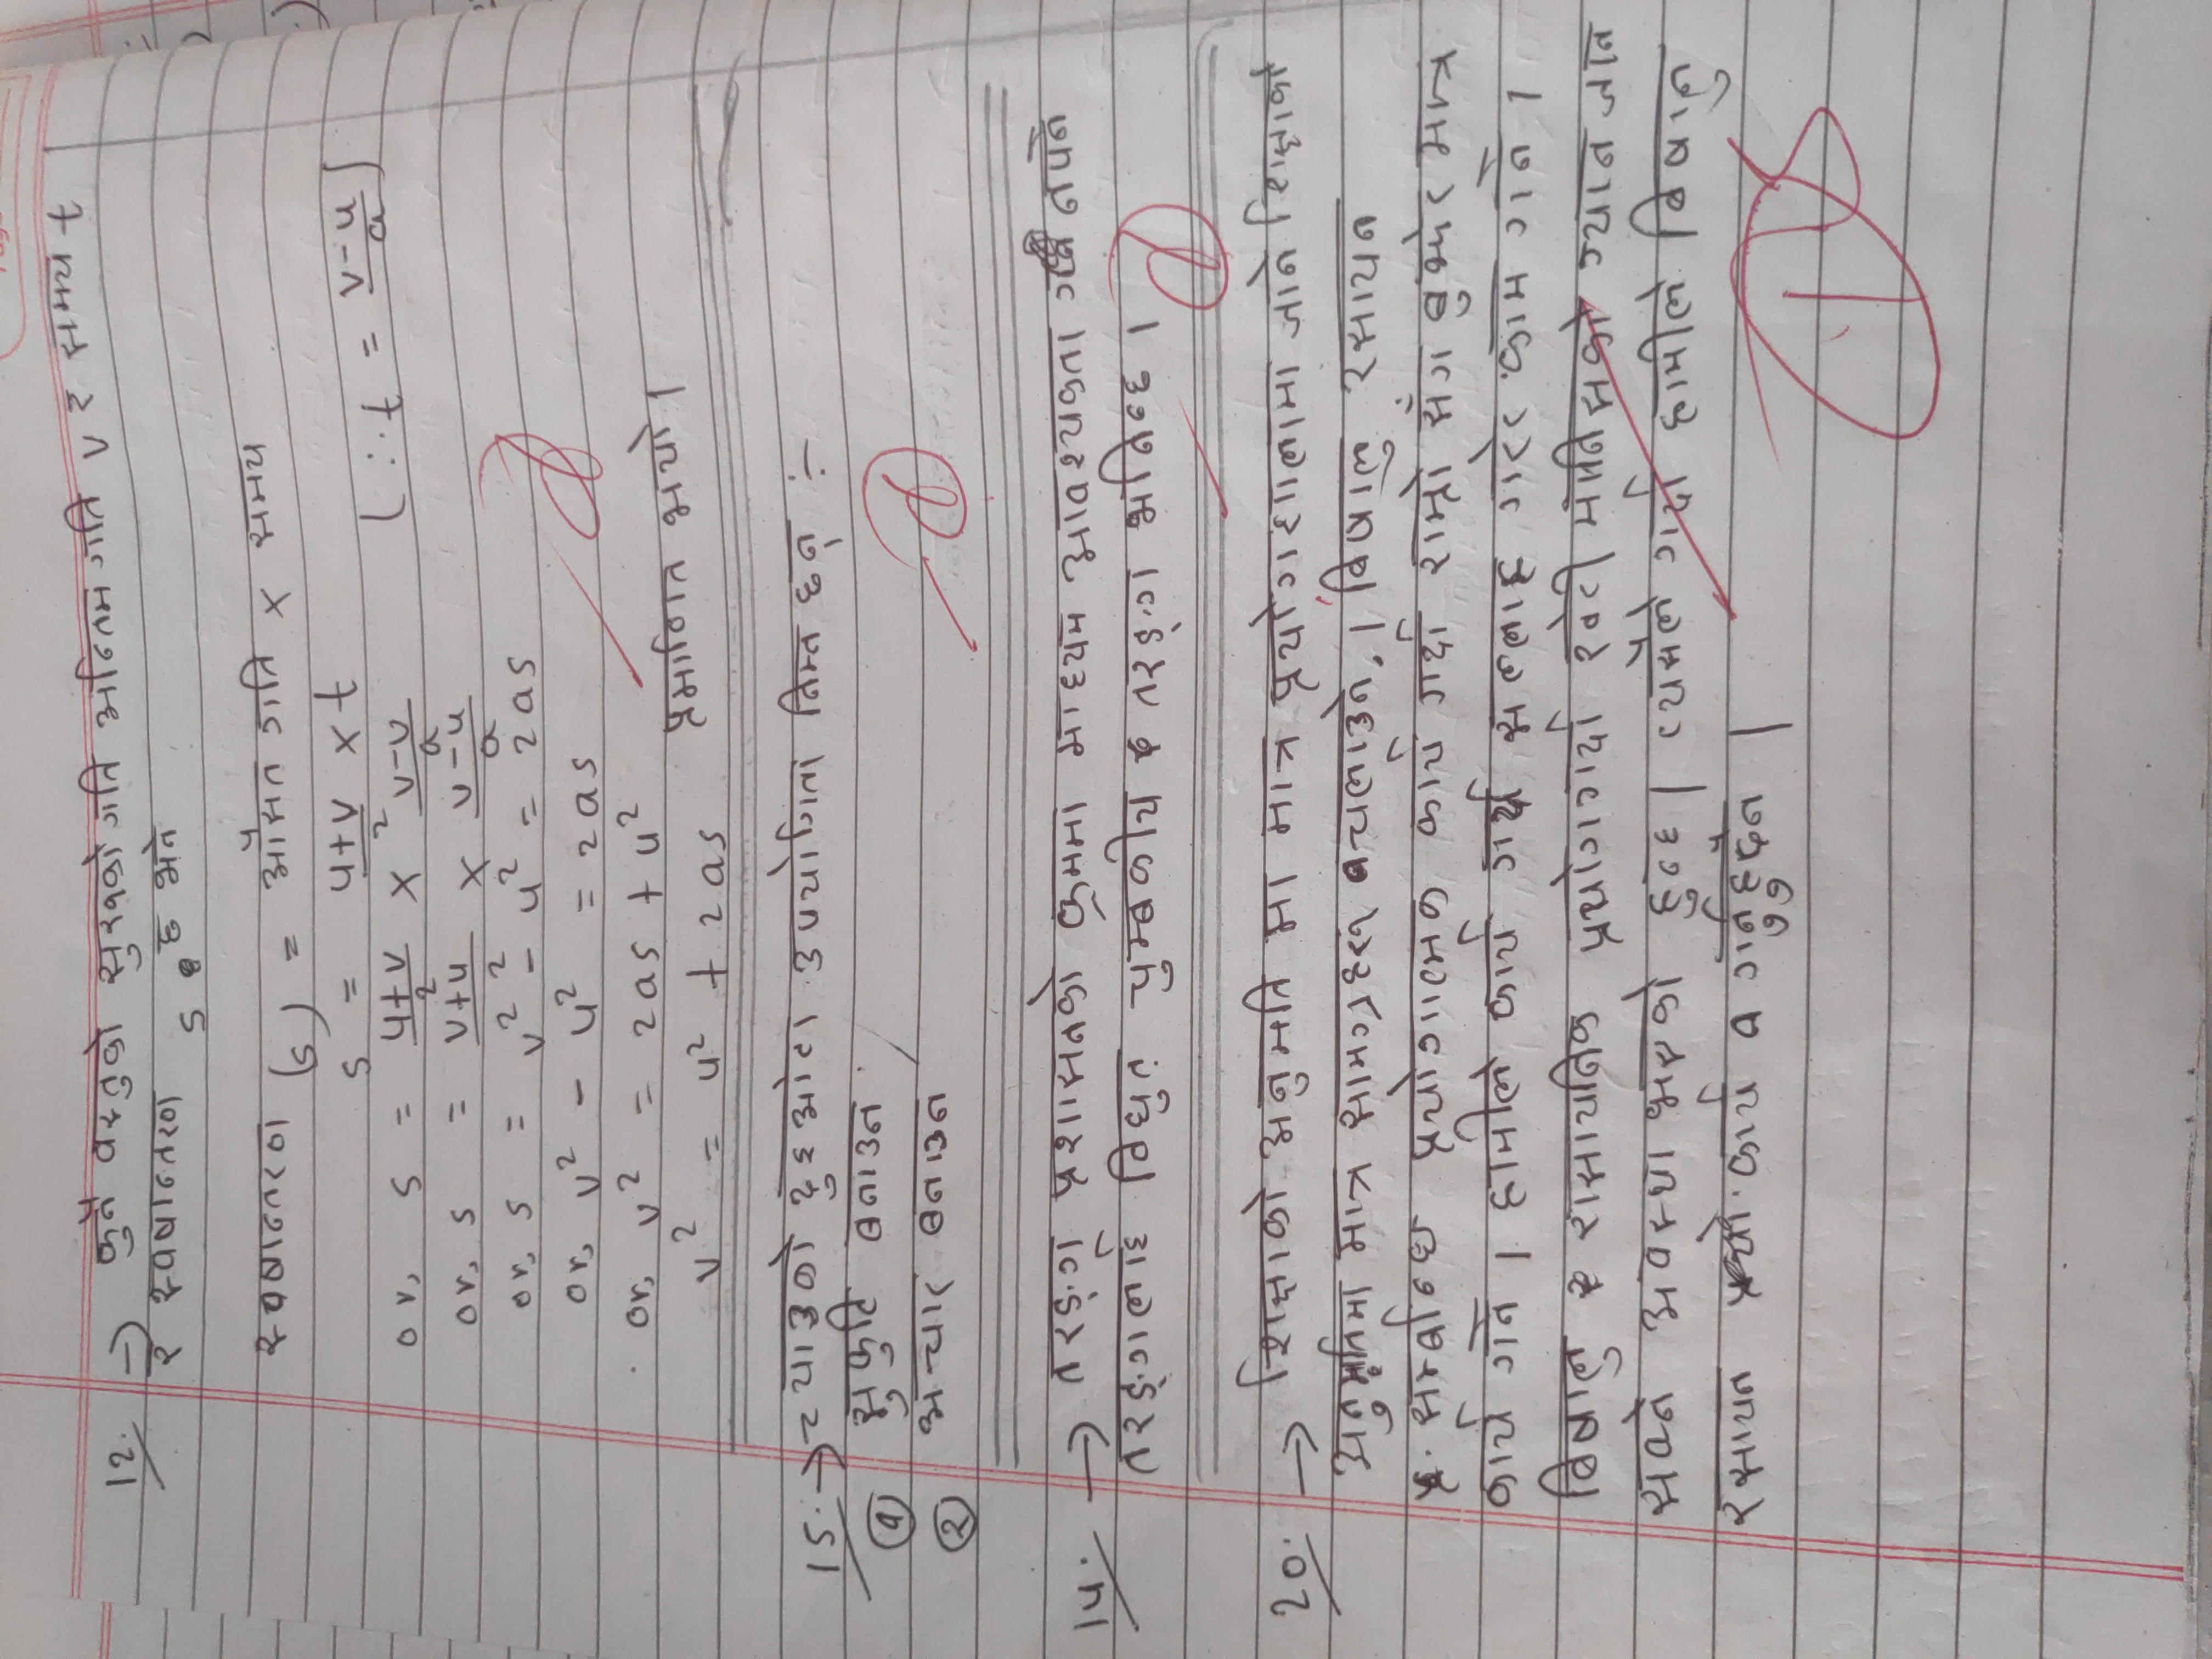 12. → कुनै वस्तुको सुरुको गति अन्तिम गति v र समय t
र स्थानान्तरण s छ भने
स्थानान्तरण (s) = औसत गति × समय
s = u+v/2 × t
or, s = u+v/2 × v-u/a (∴ t = v-u/a)
or, s = v+u/2 × v-u/a
or, s = v² - u² = 2as
or, v² - u² = 2as
or, v² = 2as + u²
v² = u² + 2as प्रमाणित भयो।
15. → च्याउको दुइओटा उपयोगिता निम्न छन् :-
१ सुकुटि बनाउन
२ अचार बनाउन
14. → तरङ्ग प्रशासनको क्रममा माध्यम आवश्यकता नपर्ने
तरङ्गलाई विधुत चुम्बकीय तरङ्ग भनिन्छ।
20. → शिक्षाको अनुमति मा मात्र प्रयोगशालामा जाने शिक्षाको
अनुमतिमा मात्र सामग्रहरू चलाउने। विषालु रसायन
सम्बन्धि प्रयोगात्मक कार्य गर्दा राम्रो सँग बुझेर मात्र
कार्य गर्ने। हामीले कार्य गर्दा सल्लाह गरेर काम गर्ने।
विषालु रासायनिक प्रयोग गर्दा मानिसको ज्यान जान
सक्ने अवस्था भएको हुन्छ। त्यसैले गर्दा हामीले विषालु
रसायन कार्य गर्नुहुदैन।